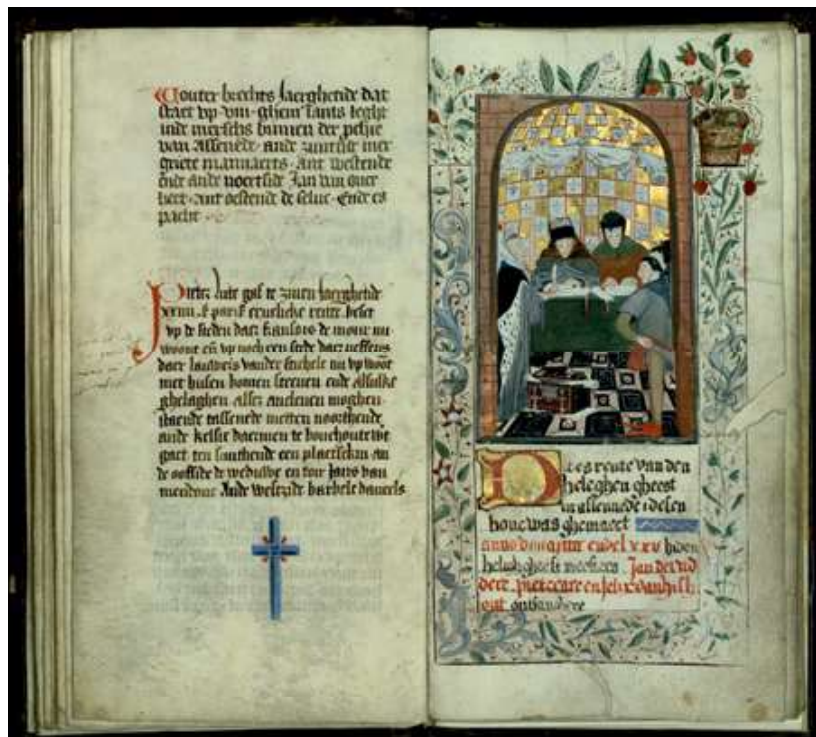 Wouter brechts Jaerghetide dat
staet vp viii ghem lants leght
inde mersche binnen der pchie
van assenede ande zuutside mer
griete mannaerts ant westende
ende ande noortside Jan van ouer
heet ant oostende de selue Ende es
pacht
Pieter gaf te zinen Jaerghetide
paris eruelicke rente beset
vp de steden daer fransois de mour nu
woont en vp noch een stede daer neffens
daer lauwers vander stichele nu vp woont
met husen boomen ende
ghelaghen alser ancleuen moghen
staende tassenede metten noorthende
ande kelsie daermen te bouchoute we
gaet ten zuuthende een plaetsekin an
de oostside de weduwe en Jans van
ande westzide daneels
Dit es rente van den
heleghen gheest
in assenede desen
bouc was ghemaect
anno en lxxv bi den
helich gheest meesters Jan de rid
dere pieter en van hils
out ontfanghere